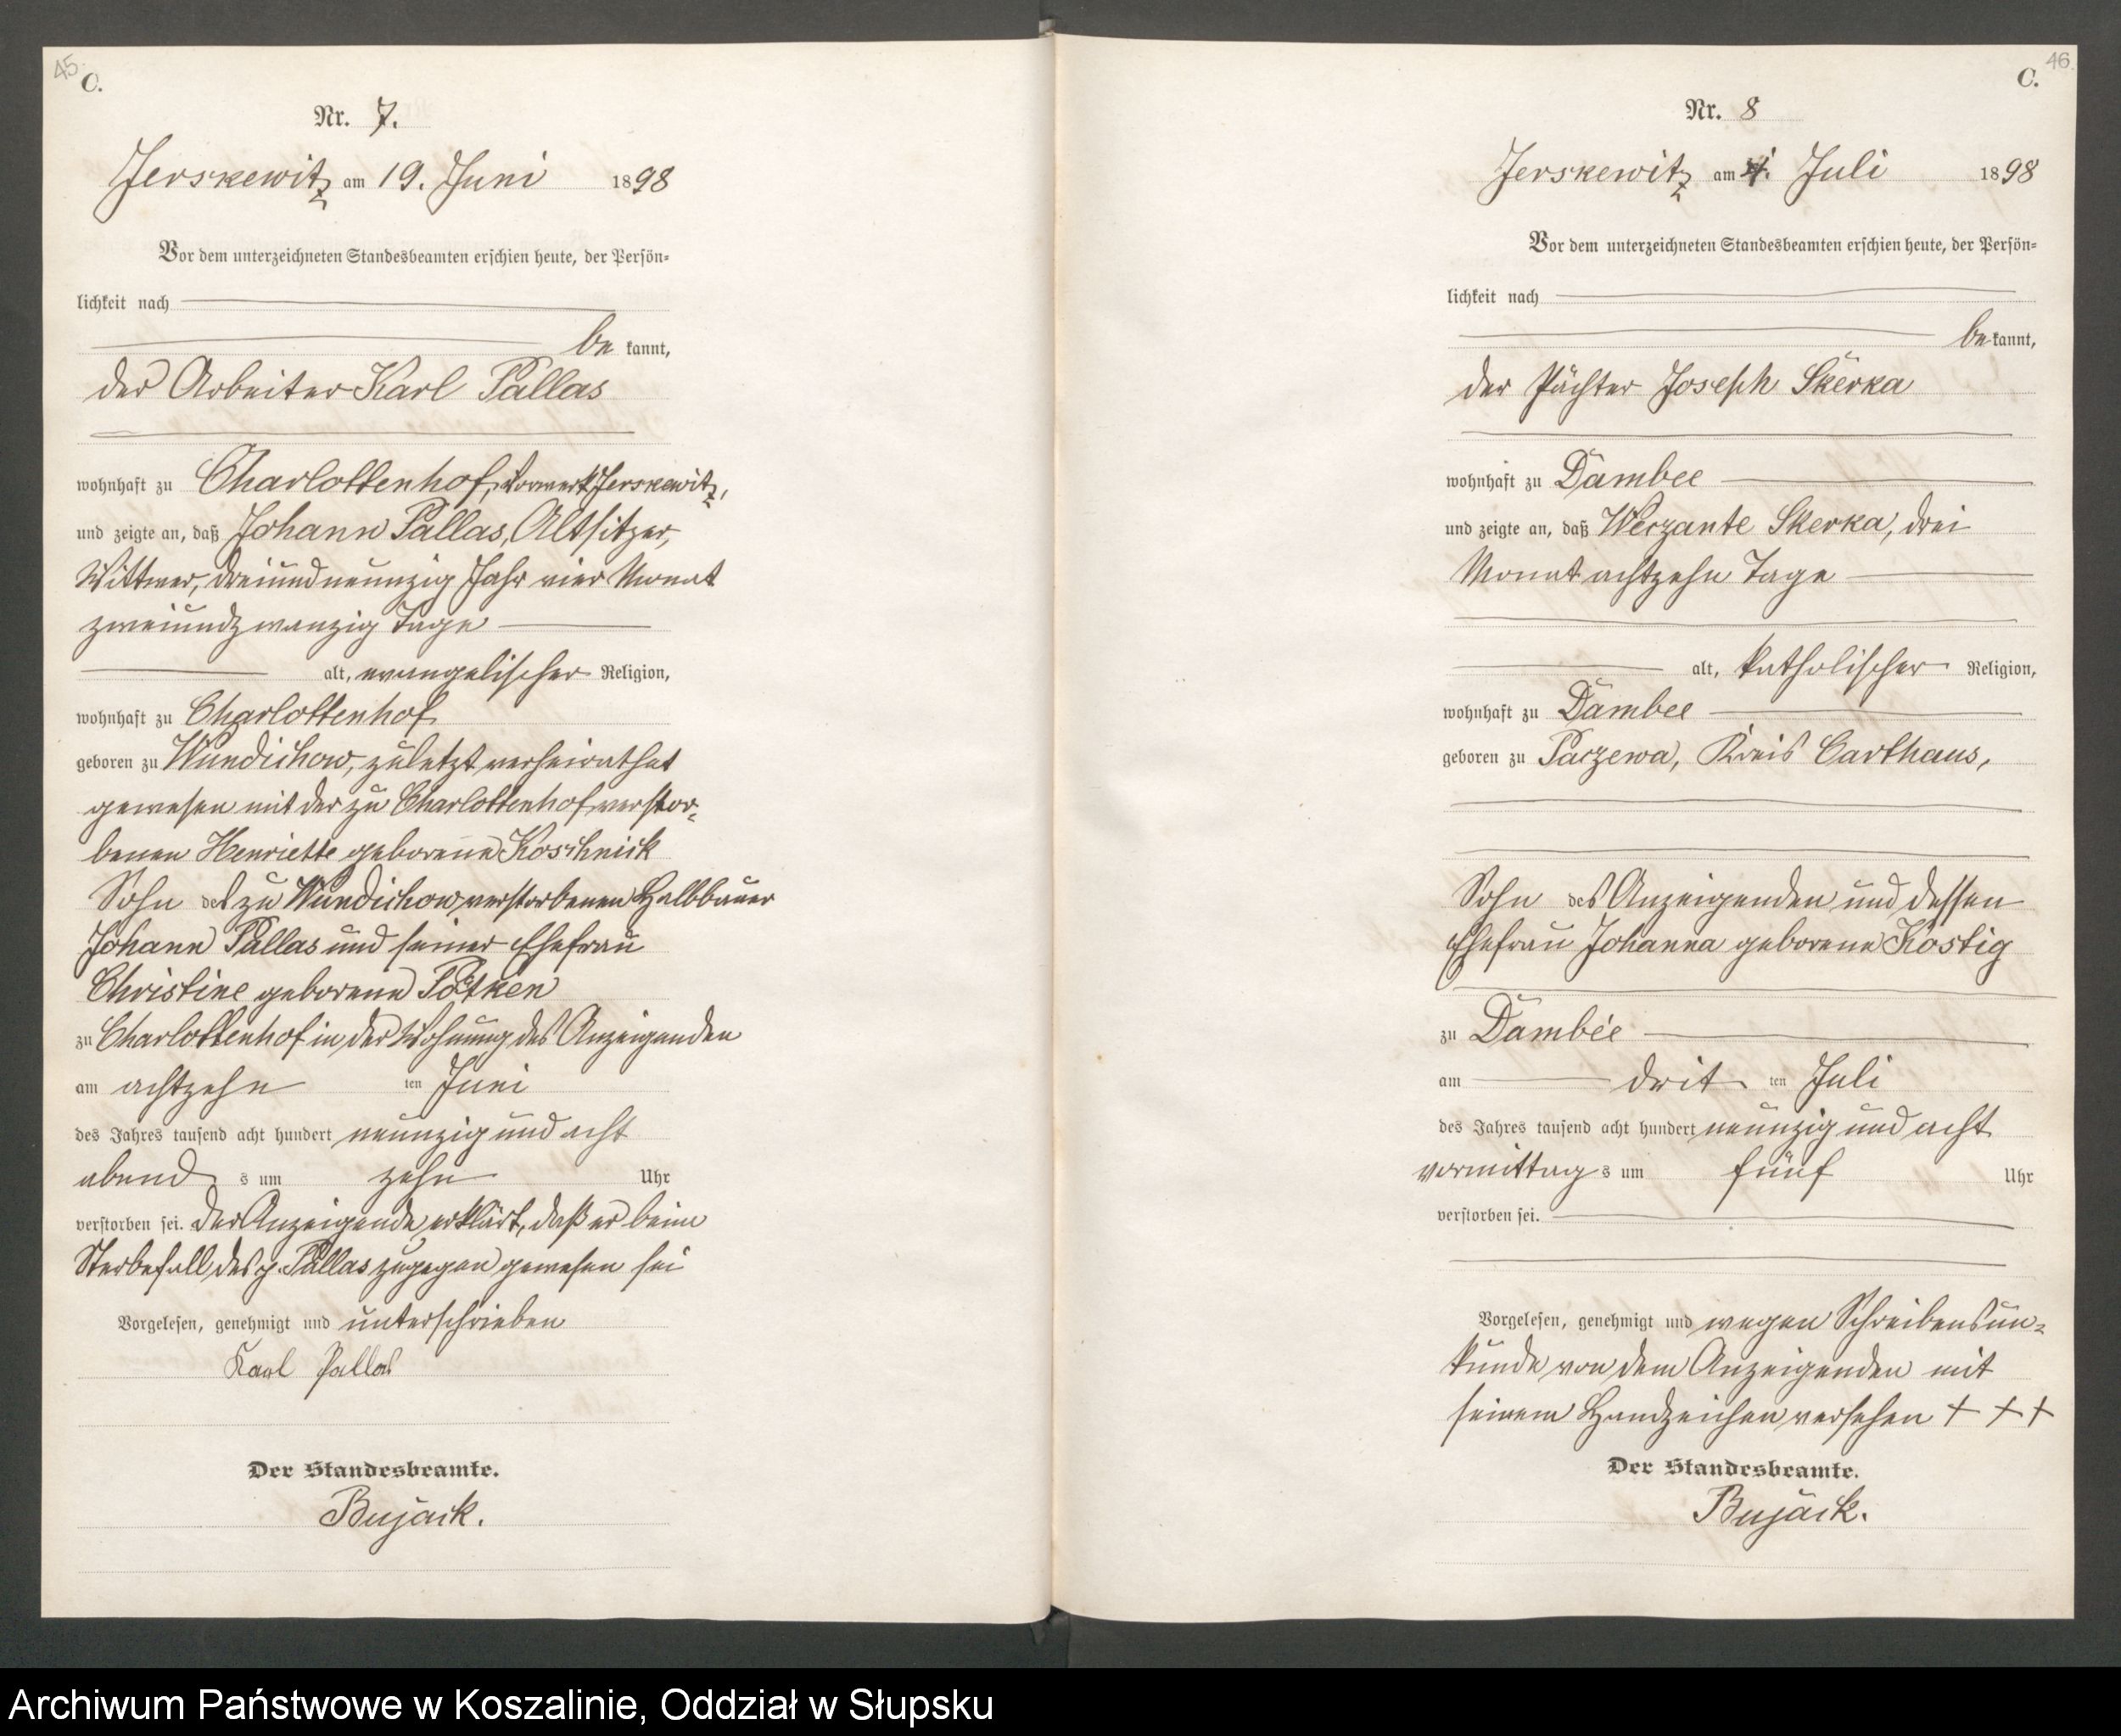 45.
C.
Nr. 7.
Jerskewitz am 19. Juni 1898
Vor dem unterzeichneten Standesbeamten erschien heute, der Persön=
lichkeit nach
be kannt,
der Arbeiter Karl Pallas
wohnhaft zu Charlottenhof, Vorwerk Jerskewitz,
und zeigte an, daß Johann Pallas, Altsitzer,
Wittwer, dreiundneunzig Jahr vier Monat
zweiundzwanzig Tage
alt, evangelischer Religion,
wohnhaft zu Charlottenhof
geboren zu Wundichow, zuletzt verheirathet
gewesen mit der zu Charlottenhof verstor=
benen Henriette geborene Koschnick
Sohn des zu Wundichow verstorbenen Halbbauer
Johann Pallas und seiner Ehefrau
Christine geborene
zu Charlottenhof in der Wohnung des Anzeigenden
am achtzehn ten Juni
des Jahres tausend acht hundert neunzig und acht
abend s um zehn Uhr
verstorben sei. Der Anzeigende erklärt, daß er beim
Sterbefall des p. Pallas zugegen gewesen sei
Vorgelesen, genehmigt und unterschrieben
Karl Pallas
Der Standesbeamte.
Bujack.
46.
C.
Nr. 8
Jerskewitz am 4. Juli 1898
Vor dem unterzeichneten Standesbeamten erschien heute, der Persön=
lichkeit nach
be kannt,
der Pächter Joseph Skerka
wohnhaft zu Dambee
und zeigte an, daß Skerka, drei
Monat achtzehn Tage
alt, katholischer Religion,
wohnhaft zu Dambee
geboren zu Paczewa, Kreis Carthaus,
Sohn des Anzeigenden und dessen
Ehefrau Johanna geborene Kostig
zu Dambee
am drit ten Juli
des Jahres tausend acht hundert neunzig und acht
vormittag s um fünf Uhr
verstorben sei.
Vorgelesen, genehmigt und wegen Schreibensun=
kunde von dem Anzeigenden mit
seinem Handzeichen versehen + + +
Der Standesbeamte.
Bujack.
Archiwum Państwowe w Koszalinie, Oddział w Słupsku